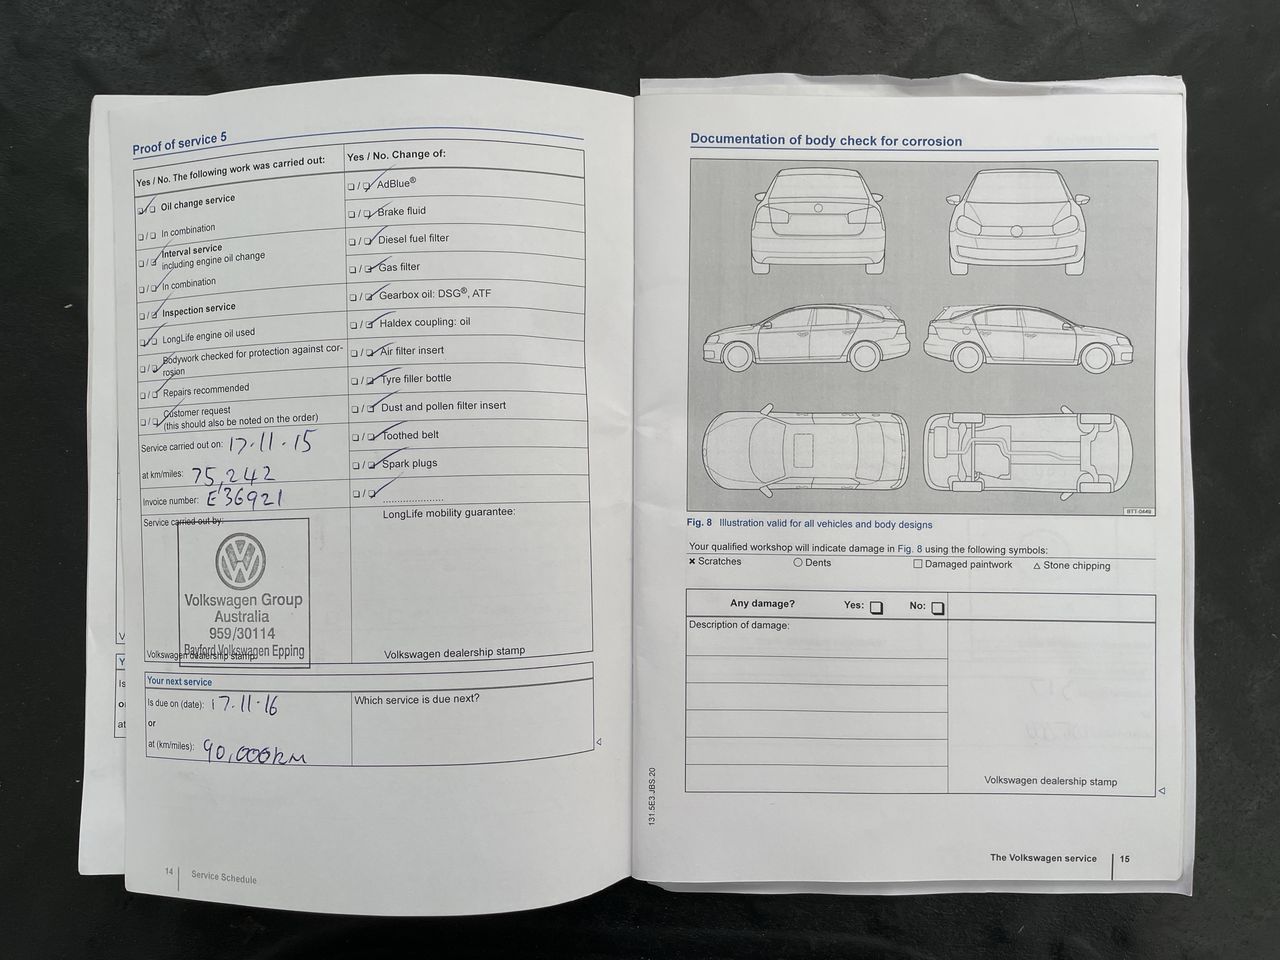 Proof of service 5
Yes / No. The following work was carried out:
Oil change service
In combination
Interval service
including engine oil change
In combination
Inspection service
LongLife engine oil used
Bodywork checked for protection against cor-
rosion
Repairs recommended
Customer request
(this should also be noted on the order)
Service carried out on: 17.11.15
at km/miles: 75,242
Invoice number: E36921
Service carried out by:
Volkswagen Group
Australia
959/30114
Bayford Volkswagen Epping
Volkswagen dealership stamp
Yes / No. Change of:
AdBlue®
Brake fluid
Diesel fuel filter
Gas filter
Gearbox oil: DSG®, ATF
Haldex coupling: oil
Air filter insert
Tyre filler bottle
Dust and pollen filter insert
Toothed belt
Spark plugs
......................
LongLife mobility guarantee:
Volkswagen dealership stamp
Your next service
Is due on (date): 17.11.16
or
at (km/miles): 90,000km
Which service is due next?
14 Service Schedule
Documentation of body check for corrosion
BTT-0449
Fig. 8 Illustration valid for all vehicles and body designs
Your qualified workshop will indicate damage in Fig. 8 using the following symbols:
× Scratches ○ Dents □ Damaged paintwork △ Stone chipping
Any damage? Yes: □ No: □
Description of damage:
Volkswagen dealership stamp
131.5E3.JBS.20
The Volkswagen service 15